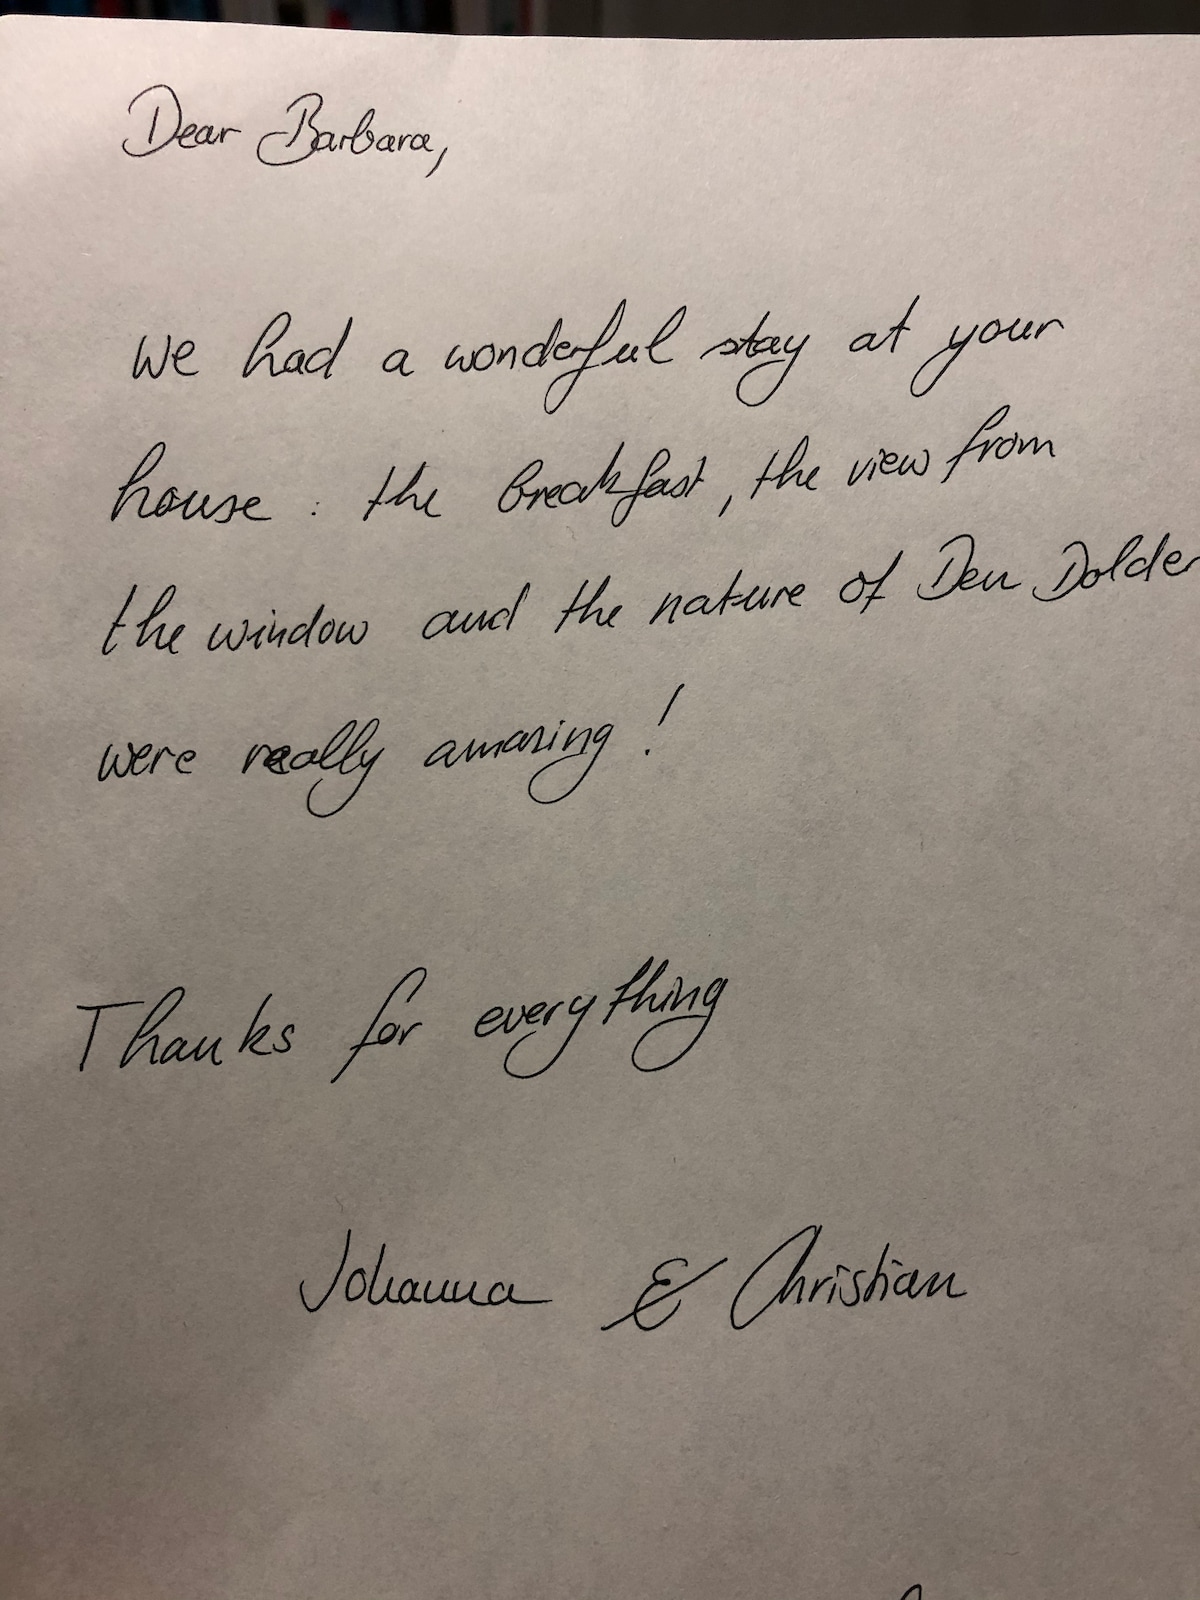 Dear Barbara,
We had a wonderful stay at your
house : the breakfast, the view from
the window and the nature of Den Dolder
were really amazing !
Thanks for everything
Johanna & Christian